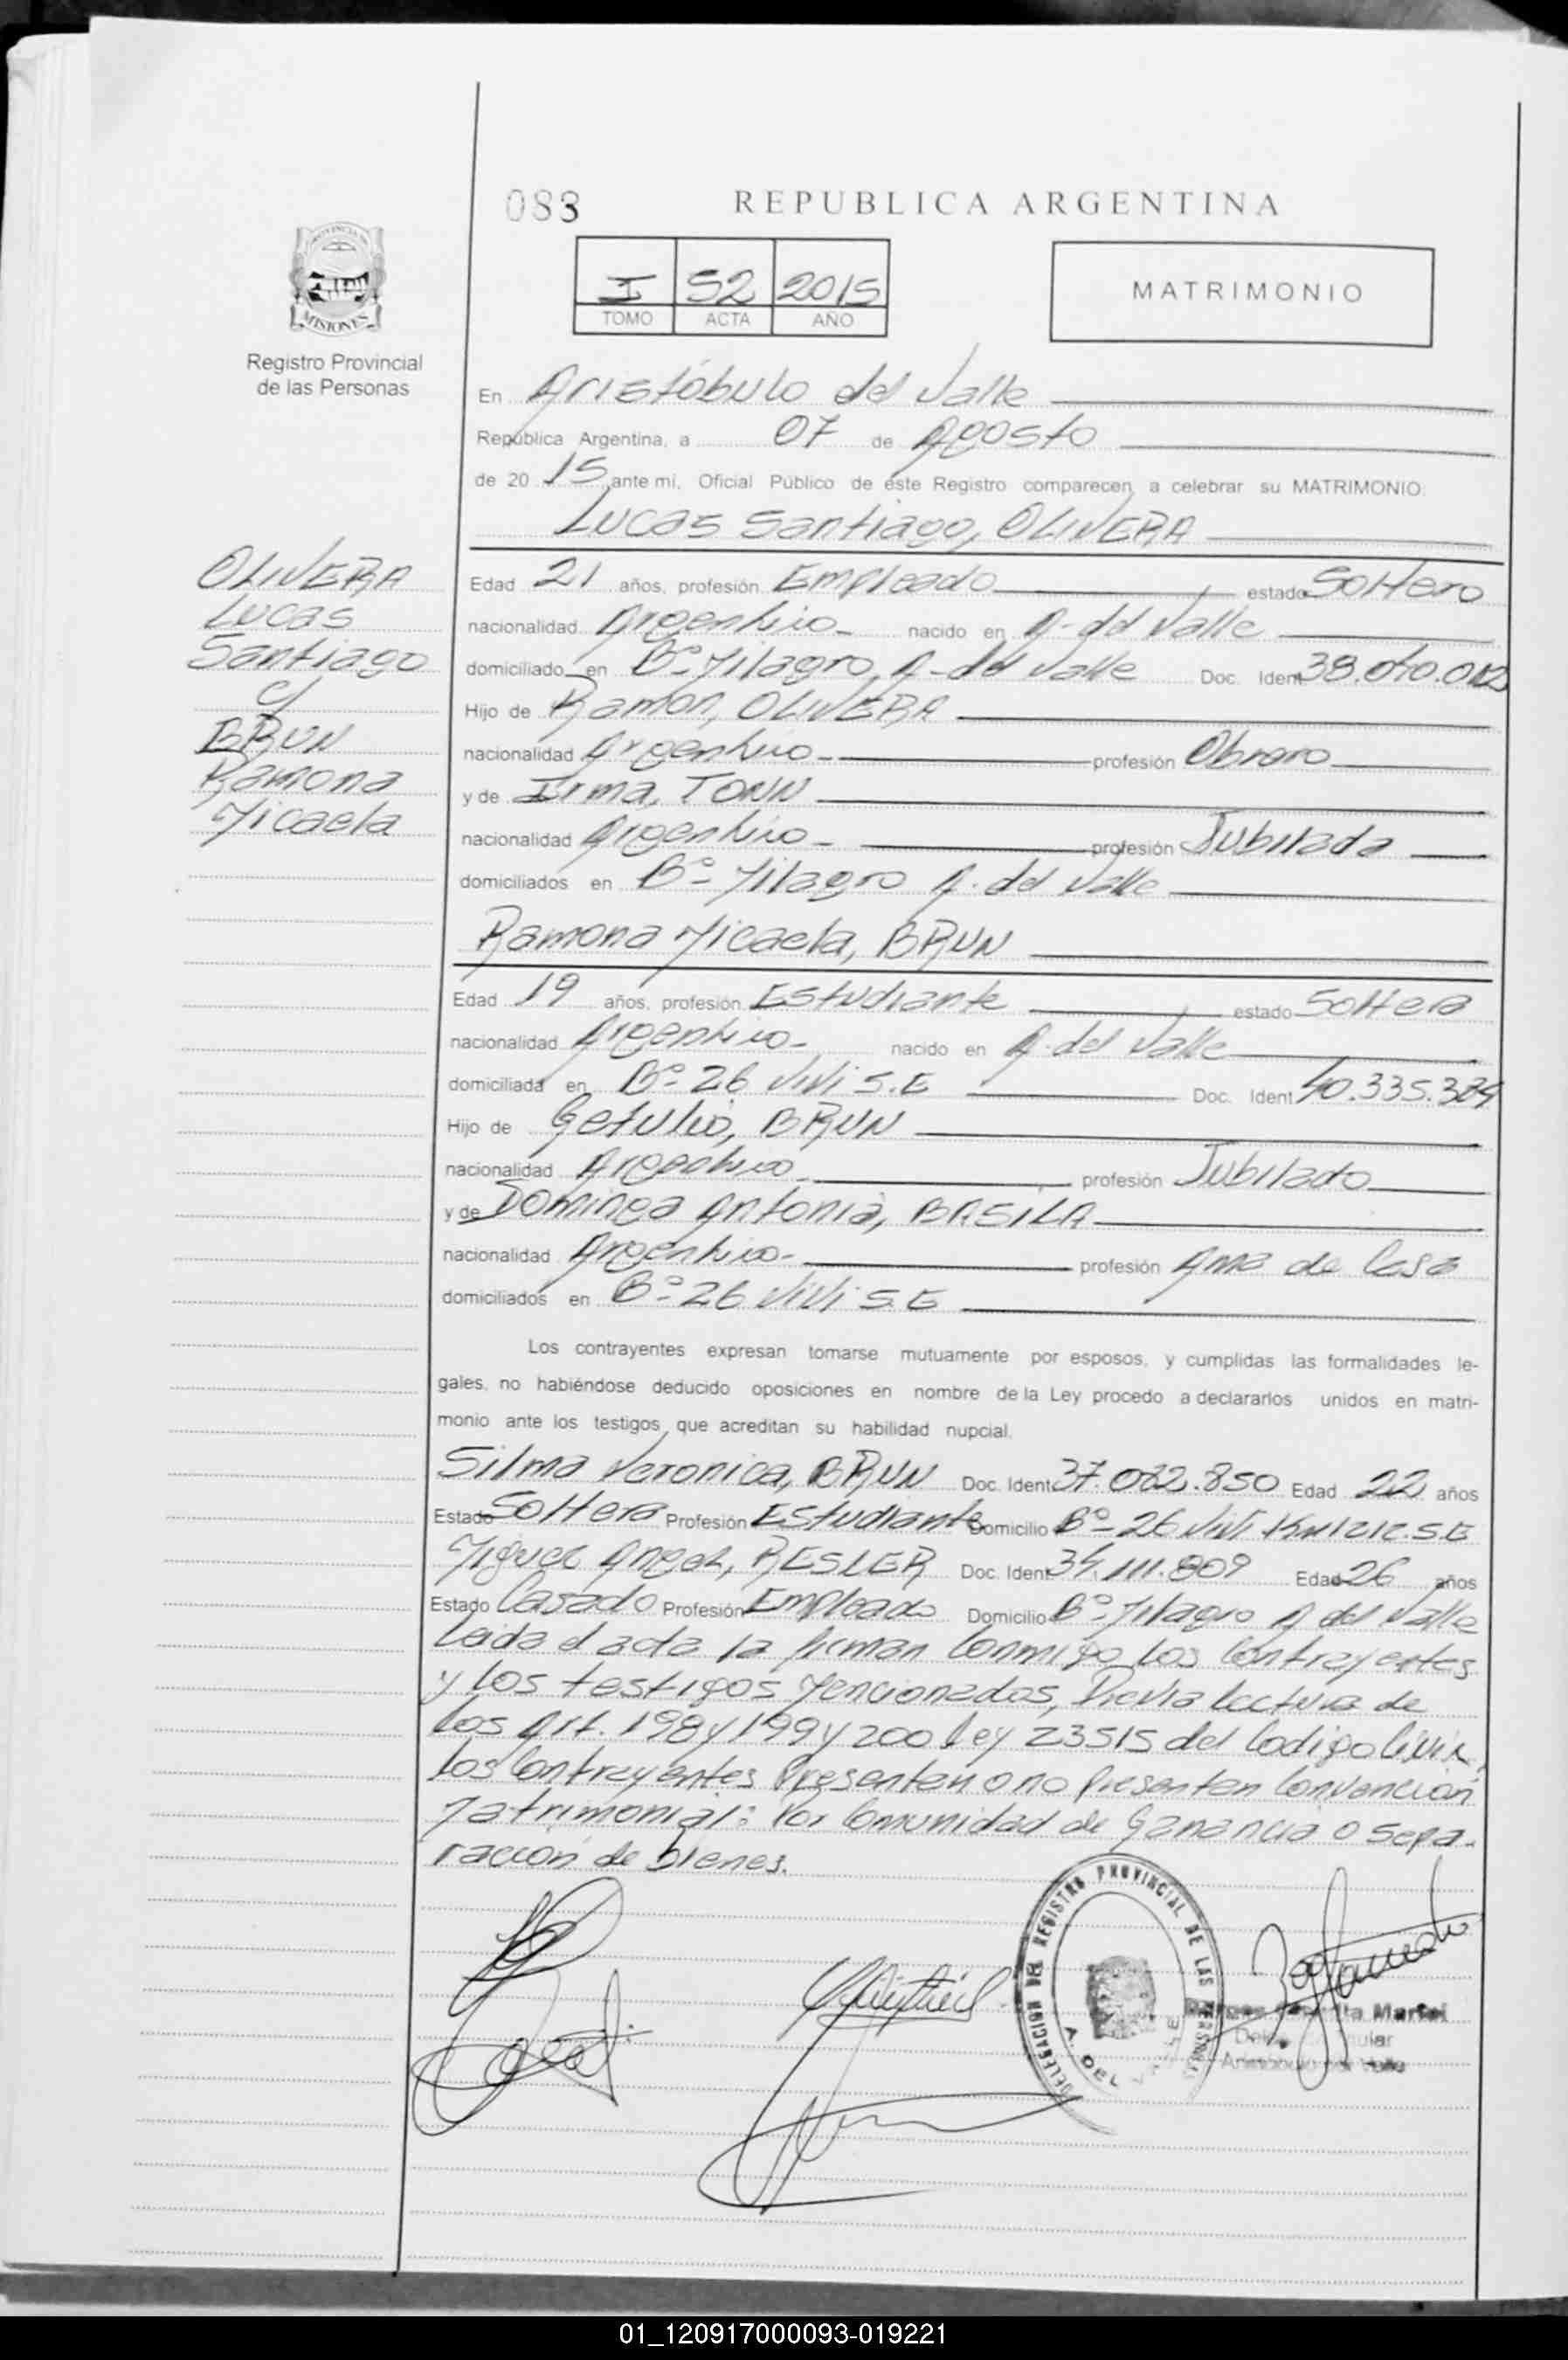 083
REPUBLICA ARGENTINA
I 52 2015
TOMO ACTA AÑO
MATRIMONIO
PROVINCIA DE
MISIONES
Registro Provincial
de las Personas
En Aristóbulo del Valle
República Argentina, a 07 de Agosto
de 20 15 ante mi, Oficial Público de éste Registro comparecen, a celebrar su MATRIMONIO:
Lucas Santiago, OLIVERA
OLIVERA
Lucas
Santiago
c/
BRUN
Ramona
Micaela
Edad 21 años, profesión Empleado estado Soltero
nacionalidad Argentino nacido en A. del Valle
domiciliado en Bº Milagro A. del Valle Doc. Ident.
Hijo de Ramon, OLIVERA
nacionalidad Argentino profesión Obrero
y de Irma, TONN
nacionalidad Argentino profesión Jubilada
domiciliados en Bº Milagro A. del Valle
Ramona Micaela, BRUN
Edad 19 años, profesión Estudiante estado Soltera
nacionalidad Argentino nacido en A. del Valle
domiciliada en Bº 26 ViVi S.E Doc. Ident.
Hijo de Getulio, BRUN
nacionalidad Argentino profesión Jubilado
y de Dominga Antonia, BASILA
nacionalidad Argentino profesión Ama de Casa
domiciliados en Bº 26 ViVi S.E
Los contrayentes expresan tomarse mutuamente por esposos, y cumplidas las formalidades le-
gales, no habiéndose deducido oposiciones en nombre de la Ley procedo a declararlos unidos en matri-
monio ante los testigos que acreditan su habilidad nupcial.
Silma Veronica, BRUN Doc. Ident. Edad 22 años
Estado Soltera Profesión Estudiante Domicilio Bº 26 ViVi. Km 1212. S.E
Miguel Angel, RESLER Doc. Ident. 34.111.809 Edad 26 años
Estado Casado Profesión Empleado Domicilio Bº Milagro A del Valle
Leida el acta la firman Conmigo los Contrayentes
y los testigos Mencionados, Previa lectura de
los Art. 198 y 199 y 200 Ley 23515 del Codigo Civil,
los Contrayentes Presenten o no Presenten Convención
Matrimonial: Por Comunidad de Ganancia o Sepa-
racción de bienes.
DELEGACION DEL REGISTRO PROVINCIAL DE LAS PERSONAS
A. DEL VALLE
Martei
Aristobulo del Valle
01_120917000093-019221